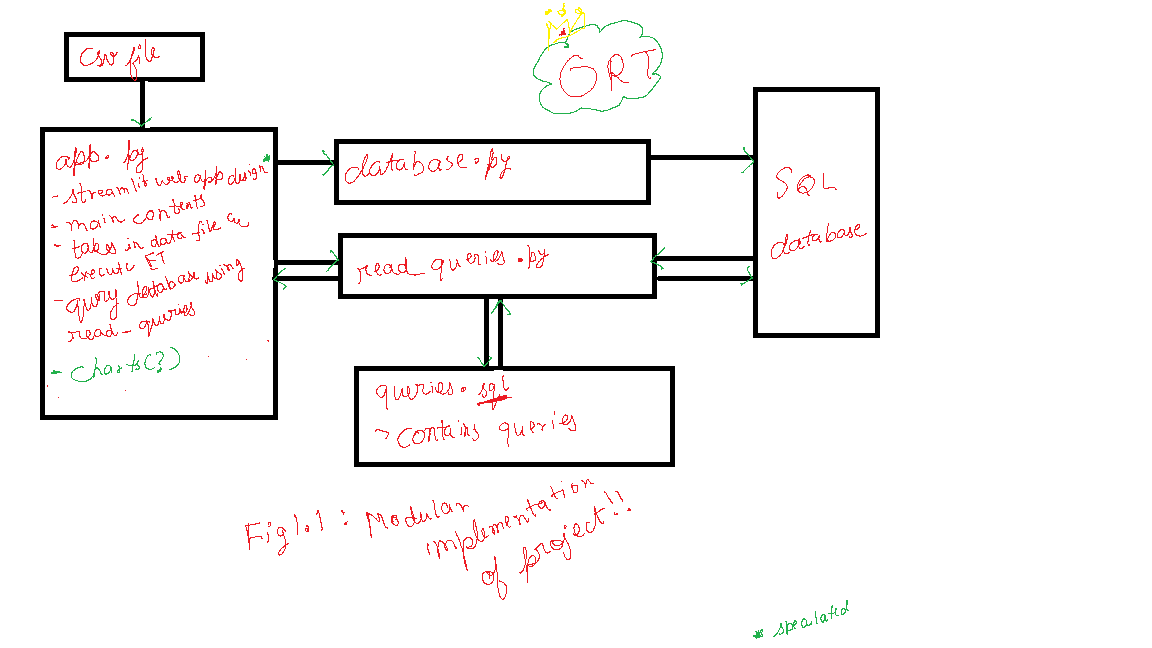 csv file
GRT
app.py *
- streamlit web app design
- main contents
- takes in data file &
execute ET
- query database using
read_queries
- charts(?)
database.py
read_queries.py
SQL
database
queries.sql
- contains queries
Fig 1.1 : Modular
implementation
of project!!